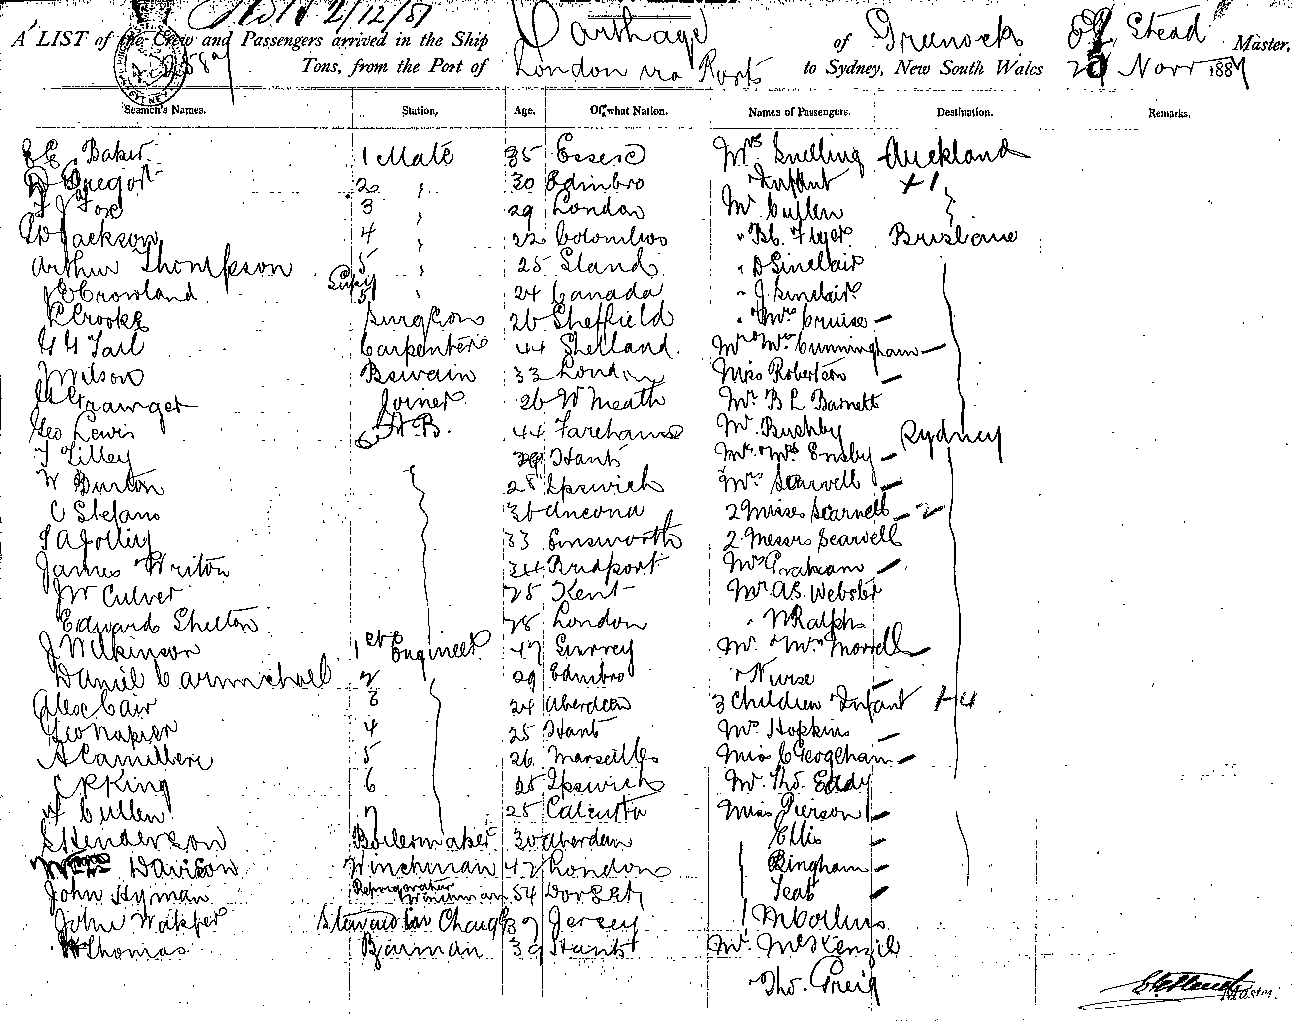 2/12/87
A LIST of the Crew and Passengers arrived in the Ship Carthage of Greenock E G Stead Master,
Tons, from the Port of London via Ports to Sydney, New South Wales 2 Novr 1887
Seamen's Names. Station, Age. Of what Nation. Names of Passengers. Destination. Remarks.
E Baker 1 Mate 35 Essex Mrs Snelling Auckland
D Gregor 2 " 30 Edinbro " Infant + 1
J Fox 3 " 29 London Mr Cullen
W Jackson 4 " 22 Colombo " Flyer Brisbane
Arthur Thompson 5 " 25 " D Sinclair
J E Crowland 5 " 24 Canada " J. Sinclair
Crooke Surgeon 26 Sheffield " Mrs Cruise –
Tait Carpenter 44 Shetland Mr Mrs Cunningham –
J Wilson Boswain 33 London Miss Robertson –
Grainger Joiner 26 W Meath Mr B L Barnett
Geo Lewis A.B. 44 Fareham Mr Bushby Sydney
T Tilley 39 Hants Mr Mrs Ensby –
W Burton 28 Ipswich Mrs Scarvell –
C Stefano 36 Ancona 2 Misses Scarvell – 2
Jolliy 33 Emsworth 2 Messrs Scarvell
James Writon 34 Bridport Mrs Graham –
W Culver 25 Kent Mr A S. Webster
Edward Shelton 28 London " W Ralph
J Wilkinson 1st Engineer 47 Surrey Mr Mrs Morrell –
Daniel Carmichael 2 29 Edinbro " Nurse –
Alex Cair 3 24 Aberdeen 3 Children Infant + 4
Geo Napier 4 25 Hants Mrs Hopkins –
A Camilleri 5 26 Marseilles Miss C Geoghan –
C P King 6 25 Ipswich Mr. Tho. Eddy
Cullen 7 25 Calcutta Miss Pierson –
Henderson Boilermaker 30 Aberdeen Ellis –
Davison Winchman 42 London Bingham –
John Hyman Refrigerator 54 Dorset –
John Walker Steward in Charge 37 Jersey M Collins
W Thomas Barman 39 Hants Mr. McKenzie
" Tho. Greig
Master.